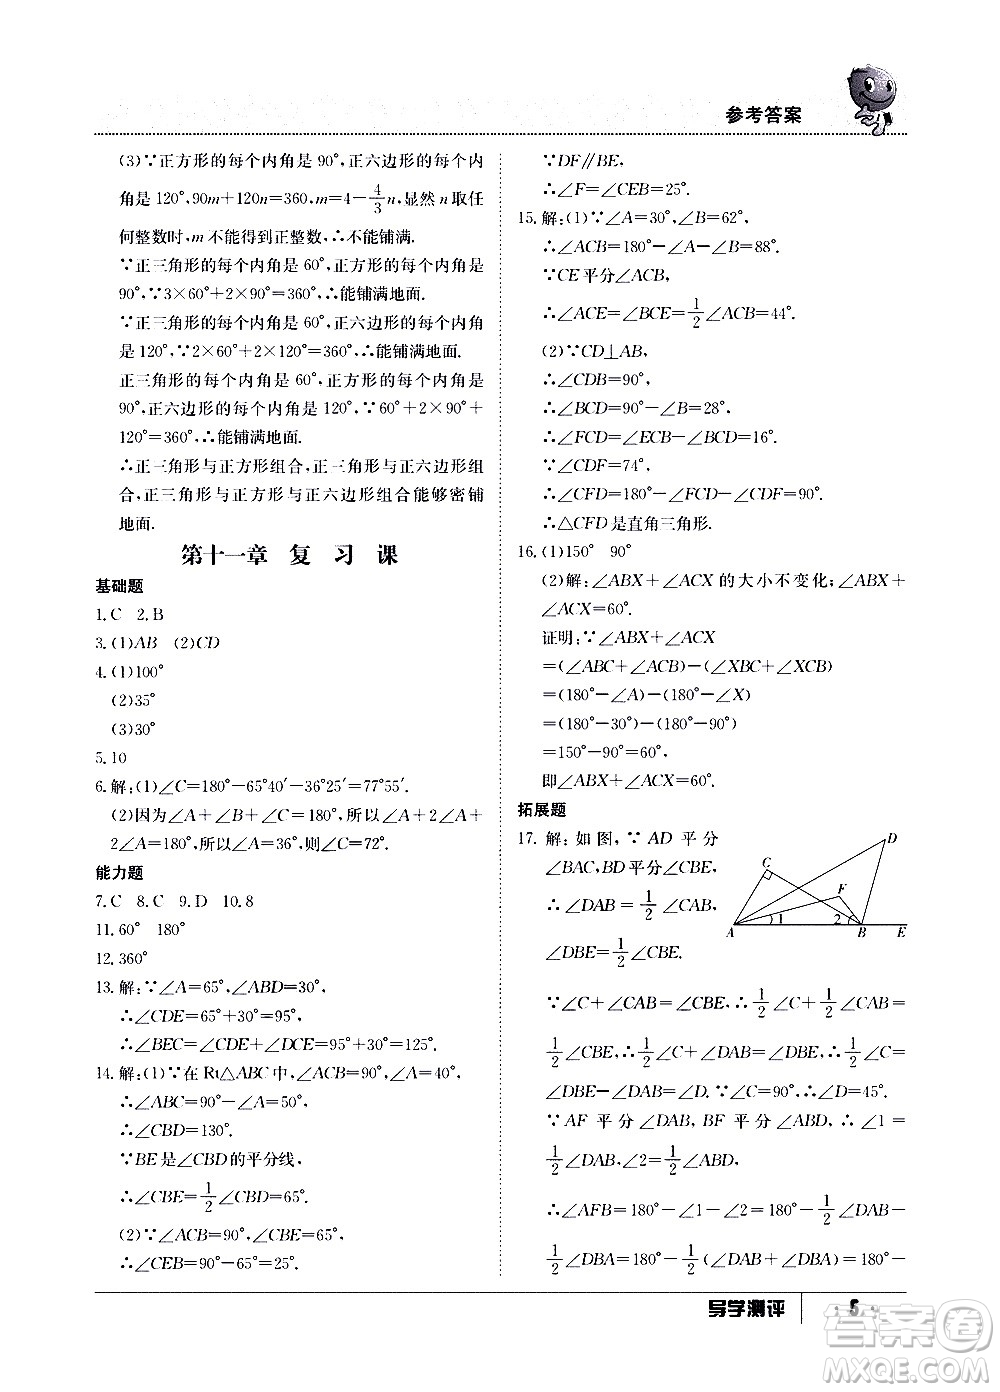 参考答案
(3)∵正方形的每个内角是90°,正六边形的每个内
角是120°,90m+120n=360,m=4-4/3n,显然n取任
何整数时,m不能得到正整数,∴不能铺满.
∵正三角形的每个内角是60°,正方形的每个内角是
90°,∵3×60°+2×90°=360°,∴能铺满地面.
∵正三角形的每个内角是60°,正六边形的每个内角
是120°,∵2×60°+2×120°=360°,∴能铺满地面.
正三角形的每个内角是60°,正方形的每个内角是
90°,正六边形的每个内角是120°,∵60°+2×90°+
120°=360°,∴能铺满地面.
∴正三角形与正方形组合,正三角形与正六边形组
合,正三角形与正方形与正六边形组合能够密铺
地面.
第十一章 复习课
基础题
1.C 2.B
3.(1)AB (2)CD
4.(1)100°
(2)35°
(3)30°
5.10
6.解:(1)∠C=180°-65°40′-36°25′=77°55′.
(2)因为∠A+∠B+∠C=180°,所以∠A+
2∠A=180°,所以∠A=36°,则∠C=36°.
能力题
7.C 8.C 9.D 10.8
11.60° 180°
12.360°
13.解:∵∠A=65°,∠ABD=30°,
∴∠CDE=65°+30°=95°,
∴∠BEC=∠CDE+∠ACE=95°+30°=125°.
14.解:(1)∵在Rt△ABC中,∠ACB=90°,∠A=40°,
∴∠ABC=90°-∠A=50°,
∴∠CBD=130°.
∵BE是∠CBD的平分线,
∴∠CBE=1/2∠CBD=65°.
(2)∵∠ACB=90°,∠CBE=65°,
∴∠CEB=90°-65°=25°.
∵DF∥BE,
∴∠F=∠CEB=25°.
15.解:(1)∵∠A=30°,∠B=62°,
∴∠ACB=180°-∠A-∠B=88°.
∵CE平分∠ACB,
∴∠ACE=∠BCE=1/2∠ACB=44°.
(2)∵CD⊥AB,
∴∠CDB=90°,
∴∠BCD=90°-∠B=28°,
∴∠FCD=∠ECB-∠BCD=16°.
∵∠CDF=74°,
∴∠CFD=180°-∠FCD-∠CDF=90°.
∴△CFD是直角三角形.
16.(1)150° 90°
(2)解:∠ABX+∠ACX的大小不变化;∠ABX+
∠ACX=60°.
证明:∵∠ABX+∠ACX
=(∠ABC+∠ACB)-(∠XBC+∠XCB)
=(180°-∠A)-(180°-∠X)
=(180°-30°)-(180°-90°)
=150°-90°=60°,
即∠ABX+∠ACX=60°.
拓展题
17.解:如图,∵AD平分
∠BAC,BD平分∠CBE,
∴∠DAB=1/2∠CAB,
∠DBE=1/2∠CBE.
C D F 1 2 A B E
∵∠C+∠CAB=∠CBE,∴1/2∠C+1/2∠CAB=
1/2∠CBE,∴1/2∠C+∠DAB=∠DBE,∴1/2∠C=
∠DBE-∠DAB=∠D.∵∠C=90°,∴∠D=45°.
∵AF平分∠DAB,BF平分∠ABD,∴∠1=
1/2∠DAB,∠2=1/2∠ABD,
∴∠AFB=180°-∠1-∠2=180°-1/2∠DAB-
1/2∠DBA=180°-1/2(∠DAB+∠DBA)=180°-
导学测评
5
答案圈
MXQE.COM